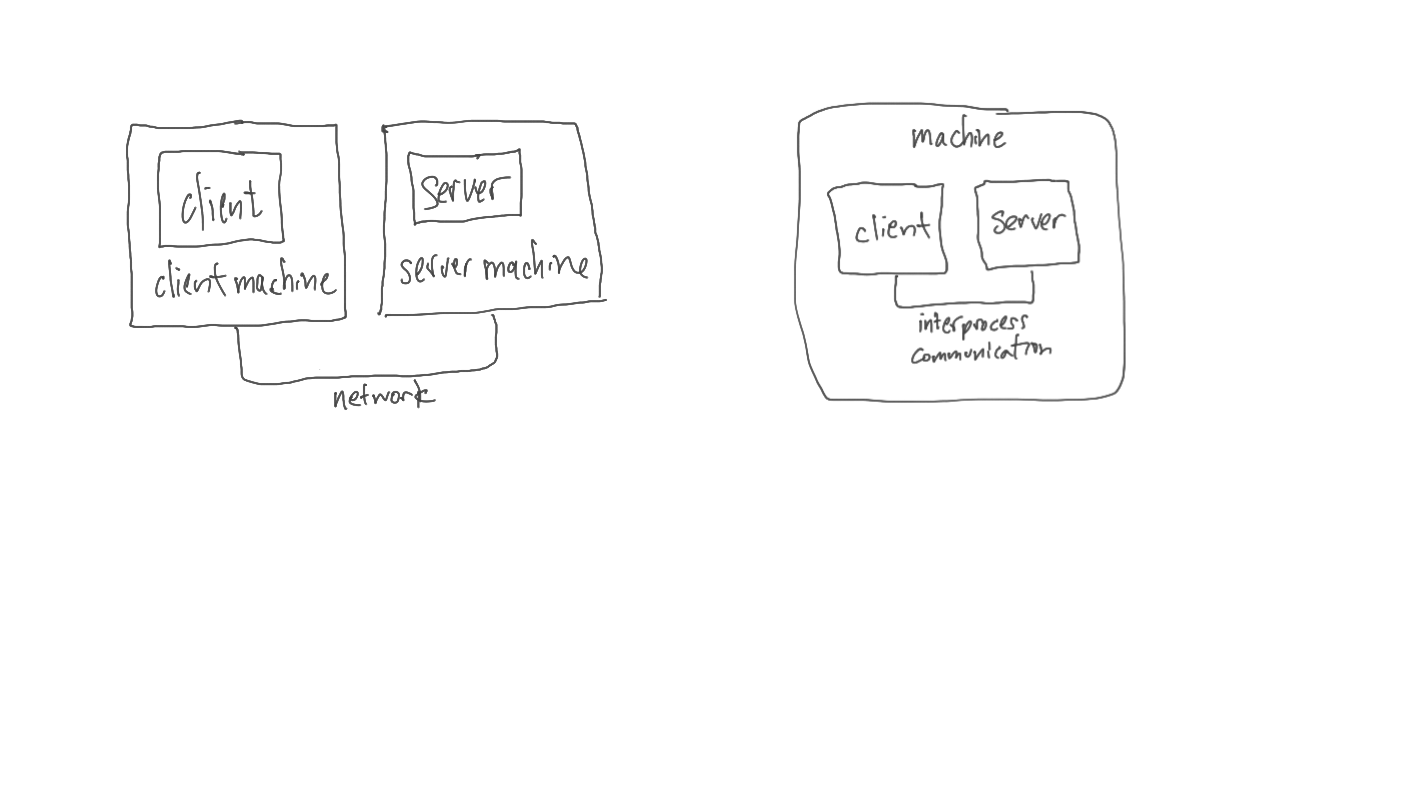 client
client machine
server
server machine
network
machine
client
server
interprocess
communication